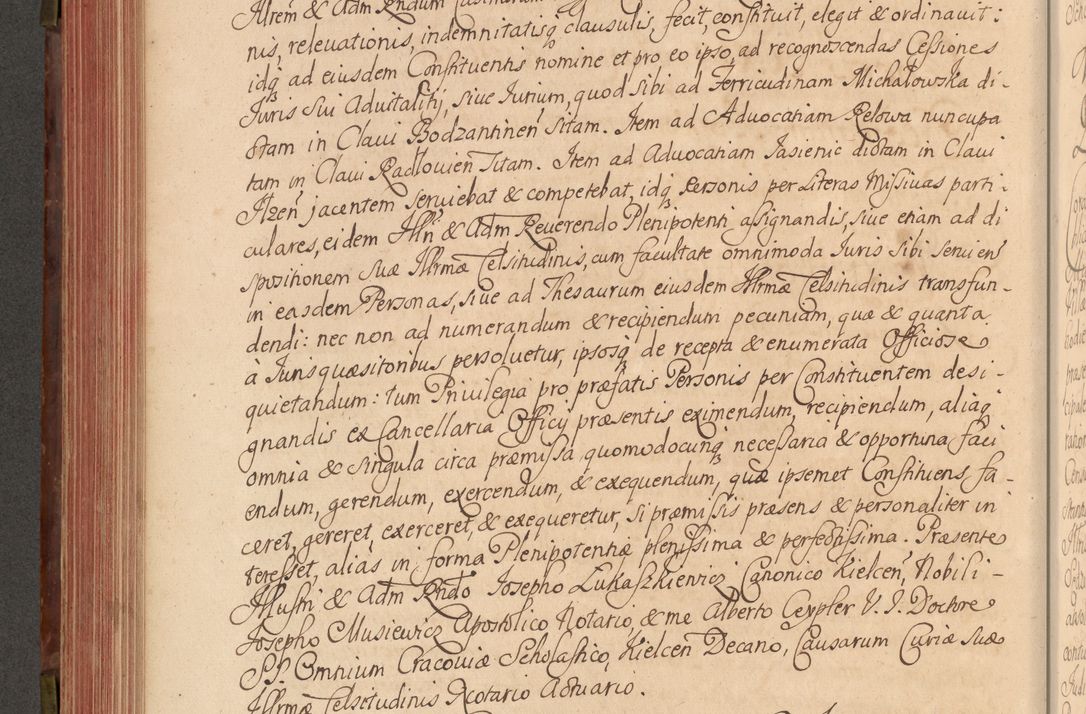 Illrem̃ & Adm̃ Rndum
nis, releuationis, indemnitatisq̃ clausulis, fecit, constituit, elegit & ordinauit:
idq̃ ad eiusdem Constituentis nomine et pro eo ipso, ad recognoscendas Cessiones
Juris sui Aduitalitÿ, siue Jurium, quod sibi ad Terricudinam Michałowska di-
ctam in Claui Bodzantinen̄ sitam. Item ad Aduocatiam Relowa nuncupa
tam in Claui Radlouien̄ sitam. Item ad Aduocatiam Jasienic dictam in Claui
Ilzen̄ jacentem seruiebat & competebat, idq̃ Personis per Literas Missiuas parti-
culares, eidem Illri & Adm̃ Reuerendo Plenipotenti assignandis, siue etiam ad di
spositionem suæ Illrmæ Celsitudinis, cum facultate omnimoda Juris sibi seruien̄
in easdem Personas, siue ad Thesaurum eiusdem Illrmæ Celsitudinis transfun-
dendi: nec non ad numerandum & recipiendum pecuniam, quæ & quanta
à Jurisquæsitoribus persoluetur, ipsosq̃ de recepta & enumerata Officiose
quietandum: tum Priuilegia pro præfatis Personis per Constituentem desi-
gnandis ex Cancellaria Officÿ præsentis eximendum, recipiendum, aliaq̃
omnia & singula circa præmissa quomodocunq̃ necessaria & opportuna faci
endum, gerendum, exercendum, & exequendum, quæ ipsemet Constituens fa-
ceret, gereret, exerceret, & exequeretur, si præmissis præsens & personaliter in
teresset, alias in forma Plenipotentiæ plenissima & perfectissima. Præsente
Illustri & Adm̃ Rndo Josepho Lukaszkiewicz Canonico Kielcen̄, Nobili-
Josepho Musiewicz Apostolico Notario, & me Alberto Ceypler V. J. Doctore
SS. Omnium Cracouiæ Scholastico, Kielcen̄ Decano, Causarum Curiæ suæ
Illrmæ Celsitudinis Notario Actuario.